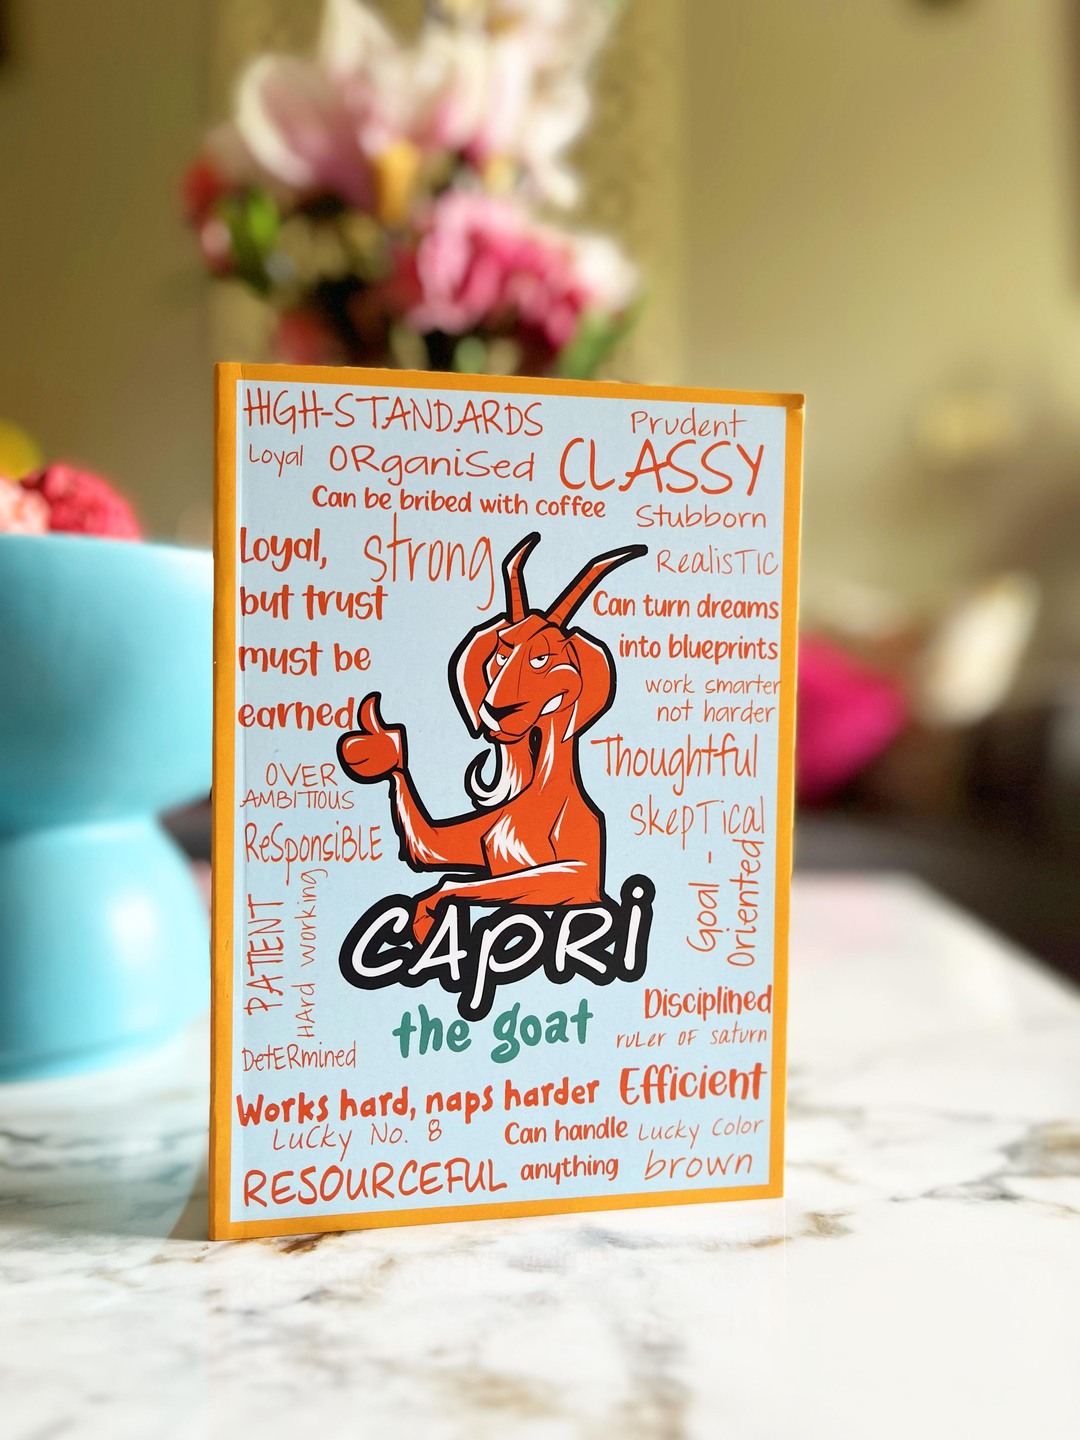 HIGH-STANDARDS
Prudent
Loyal ORganiSed CLASSY
Can be bribed with coffee
Stubborn
Loyal,
but trust
must be
earned
strong
RealisTIC
Can turn dreams
into blueprints
work smarter
not harder
Thoughtful
SkepTical
OVER
AMBITIOUS
ResponsiBLE
PATIENT
HArd working
Goal -
Oriented
CAPRi
the goat
Disciplined
ruLer OF saturn
DetERmined
Works hard, naps harder
Efficient
LuCky No. 8
Can handle
anything
Lucky Color
brown
RESOURCEFUL